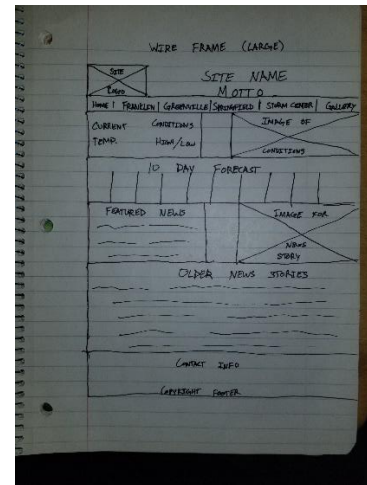 WIRE FRAME (LARGE)
SITE LOGO
SITE NAME
MOTTO
HOME | FRANKLIN | GREENVILLE | SPRINGFIELD | STORM CENTER | GALLERY
CURRENT CONDITIONS
TEMP. HIGH/LOW
IMAGE OF
CONDITIONS
10 DAY FORECAST
FEATURED NEWS
IMAGE FOR
NEWS
STORY
OLDER NEWS STORIES
CONTACT INFO
COPYRIGHT FOOTER